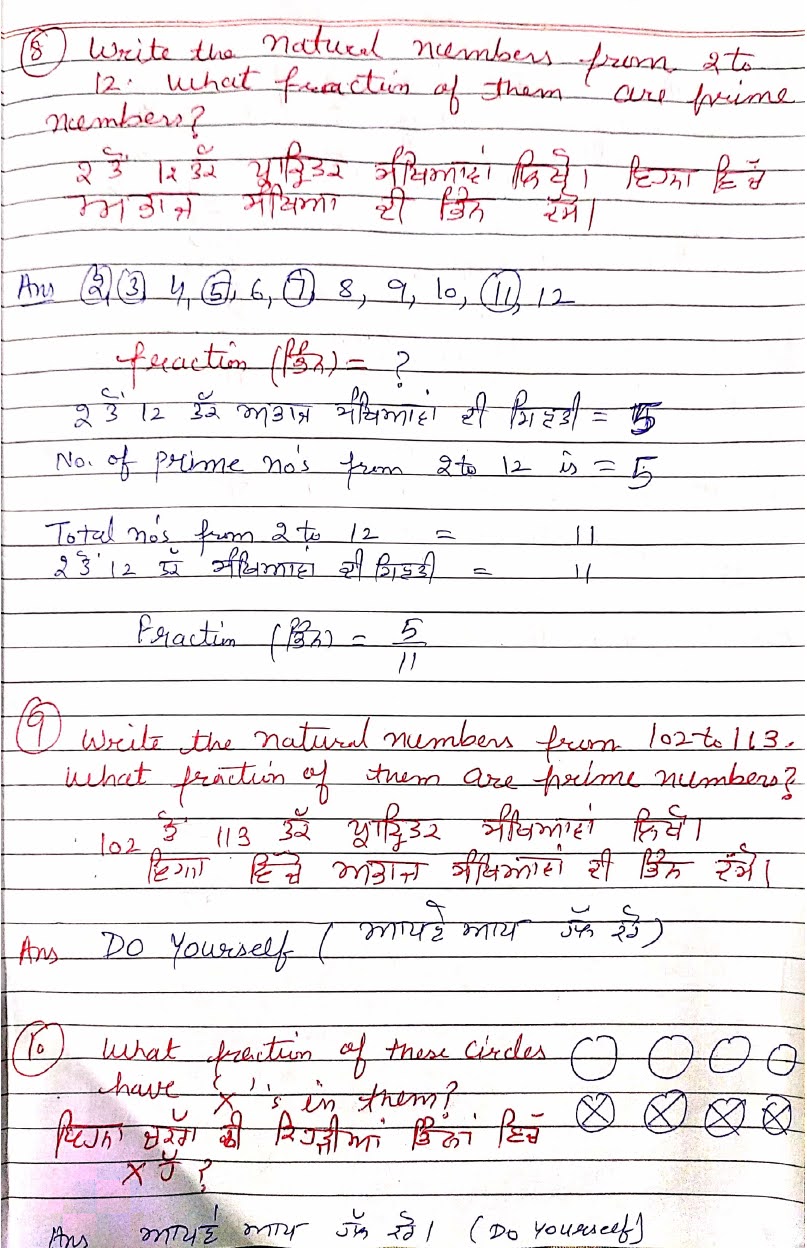 8 Write the natural numbers from 2 to
12. What fraction of them are prime
numbers?
2 ਤੋਂ 12 ਤੱਕ ਪ੍ਰਾਕ੍ਰਿਤਕ ਸੰਖਿਆਵਾਂ ਲਿਖੋ। ਇਹਨਾ ਵਿਚੋਂ
ਅਭਾਜ ਸੰਖਿਆ ਦੀ ਭਿੰਨ ਦੱਸੋ।
Ans 2, 3 4, 5, 6, 7, 8, 9, 10, 11, 12
fraction (ਭਿੰਨ) = ?
2 ਤੋਂ 12 ਤੱਕ ਅਭਾਜ ਸੰਖਿਆਵਾਂ ਦੀ ਗਿਣਤੀ = 5
No. of prime no's from 2 to 12 is = 5
Total no's from 2 to 12 = 11
2 ਤੋਂ 12 ਤੱਕ ਸੰਖਿਆਵਾਂ ਦੀ ਗਿਣਤੀ = 11
Fraction (ਭਿੰਨ) = 5/11
9 Write the natural numbers from 102 to 113.
What fraction of them are prime numbers?
102 ਤੋਂ 113 ਤੱਕ ਪ੍ਰਾਕ੍ਰਿਤਕ ਸੰਖਿਆਵਾਂ ਲਿਖੋ।
ਇਹਨਾ ਵਿੱਚੋਂ ਅਭਾਜ ਸੰਖਿਆਵਾਂ ਦੀ ਭਿੰਨ ਦੱਸੋ।
Ans Do Yourself (ਆਪਣੇ ਆਪ ਹੱਲ ਕਰੋ)
10 What fraction of these circles
have 'X's in them?
ਇਹਨਾ ਚੱਕਰਾਂ ਦੀ ਕਿਹੜੀਆਂ ਭਿੰਨਾਂ ਵਿਚੋਂ
X ਹੈ?
Ans ਆਪਣੇ ਆਪ ਹੱਲ ਕਰੋ। (Do yourself)